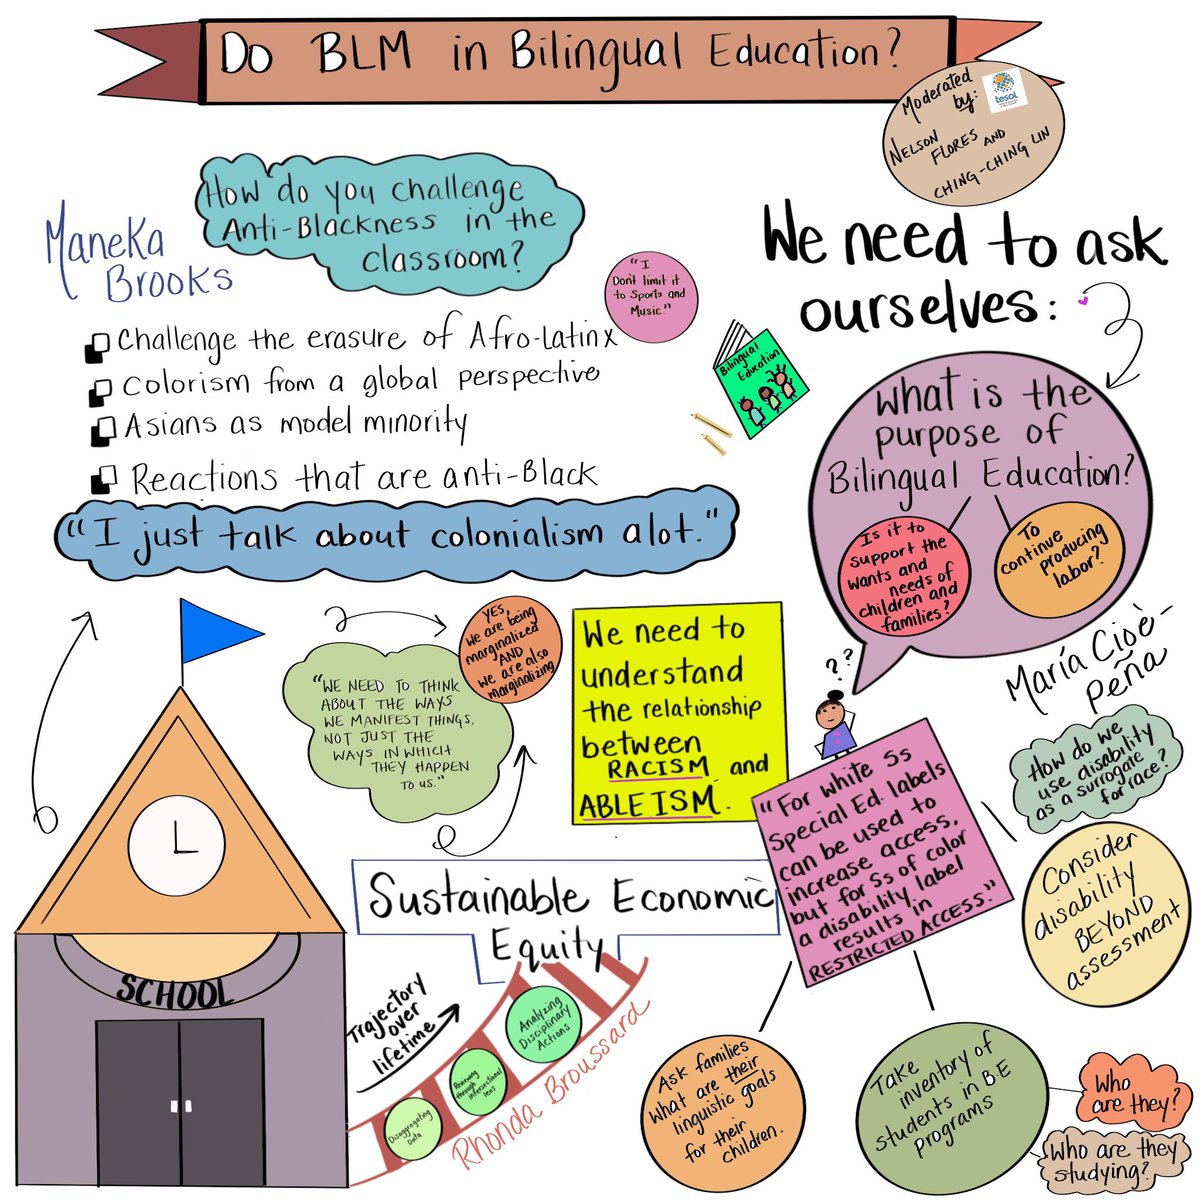 Do BLM in Bilingual Education?
Moderated
by:
tesol
NELSON
FLORES AND
CHING-CHING LIN
How do you challenge
Anti-Blackness in the
classroom?
Maneka
Brooks
"I
Don't limit it
to Sports and
Music."
Challenge the erasure of Afro-Latinx
Colorism from a global perspective
Asians as model minority
Reactions that are anti-Black
"I just talk about colonialism alot."
Bilingual
Education
We need to ask
ourselves:
What is the
purpose of
Bilingual Education?
Is it to
support the
wants and
needs of
children and
families?
To
continue
producing
labor?
??
María Cioè-
peña
"WE NEED TO THINK
ABOUT THE WAYS
WE MANIFEST THINGS,
NOT JUST THE
WAYS IN WHICH
THEY HAPPEN
TO US."
YES,
we are being
marginalized
AND
we are also
marginalizing
We need to
understand
the relationship
between
RACISM and
ABLEISM.
"For white Ss
Special Ed. labels
can be used to
increase access,
but for Ss of color
a disability label
results in
RESTRICTED ACCESS."
How do we
use disability
as a surrogate
for race?
Consider
disability
BEYOND
assessment
SCHOOL
Sustainable Economic
Equity
Trajectory
over
lifetime
Disaggregating
Data
Reviewing
through
intersectional
lens
Analyzing
Disciplinary
Actions
Rhonda Broussard
Ask families
what are their
linguistic goals
for their
children.
Take
inventory of
students in BE
programs
Who
are they?
Who are they
studying?